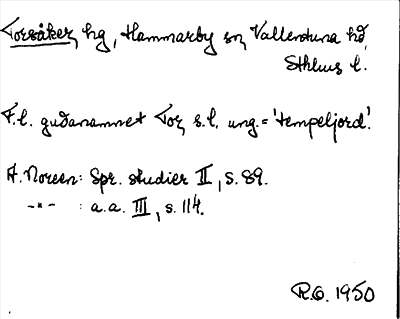 Torsåker, hg, Hammarby sn, Vallentuna hd,
Sthlms l.
F.l. gudanamnet Tor, s.l. ung. = 'tempeljord'.
A. Noreen: Spr. studier II, s. 89.
-"- : a.a. III, s. 114.
R.O. 1950